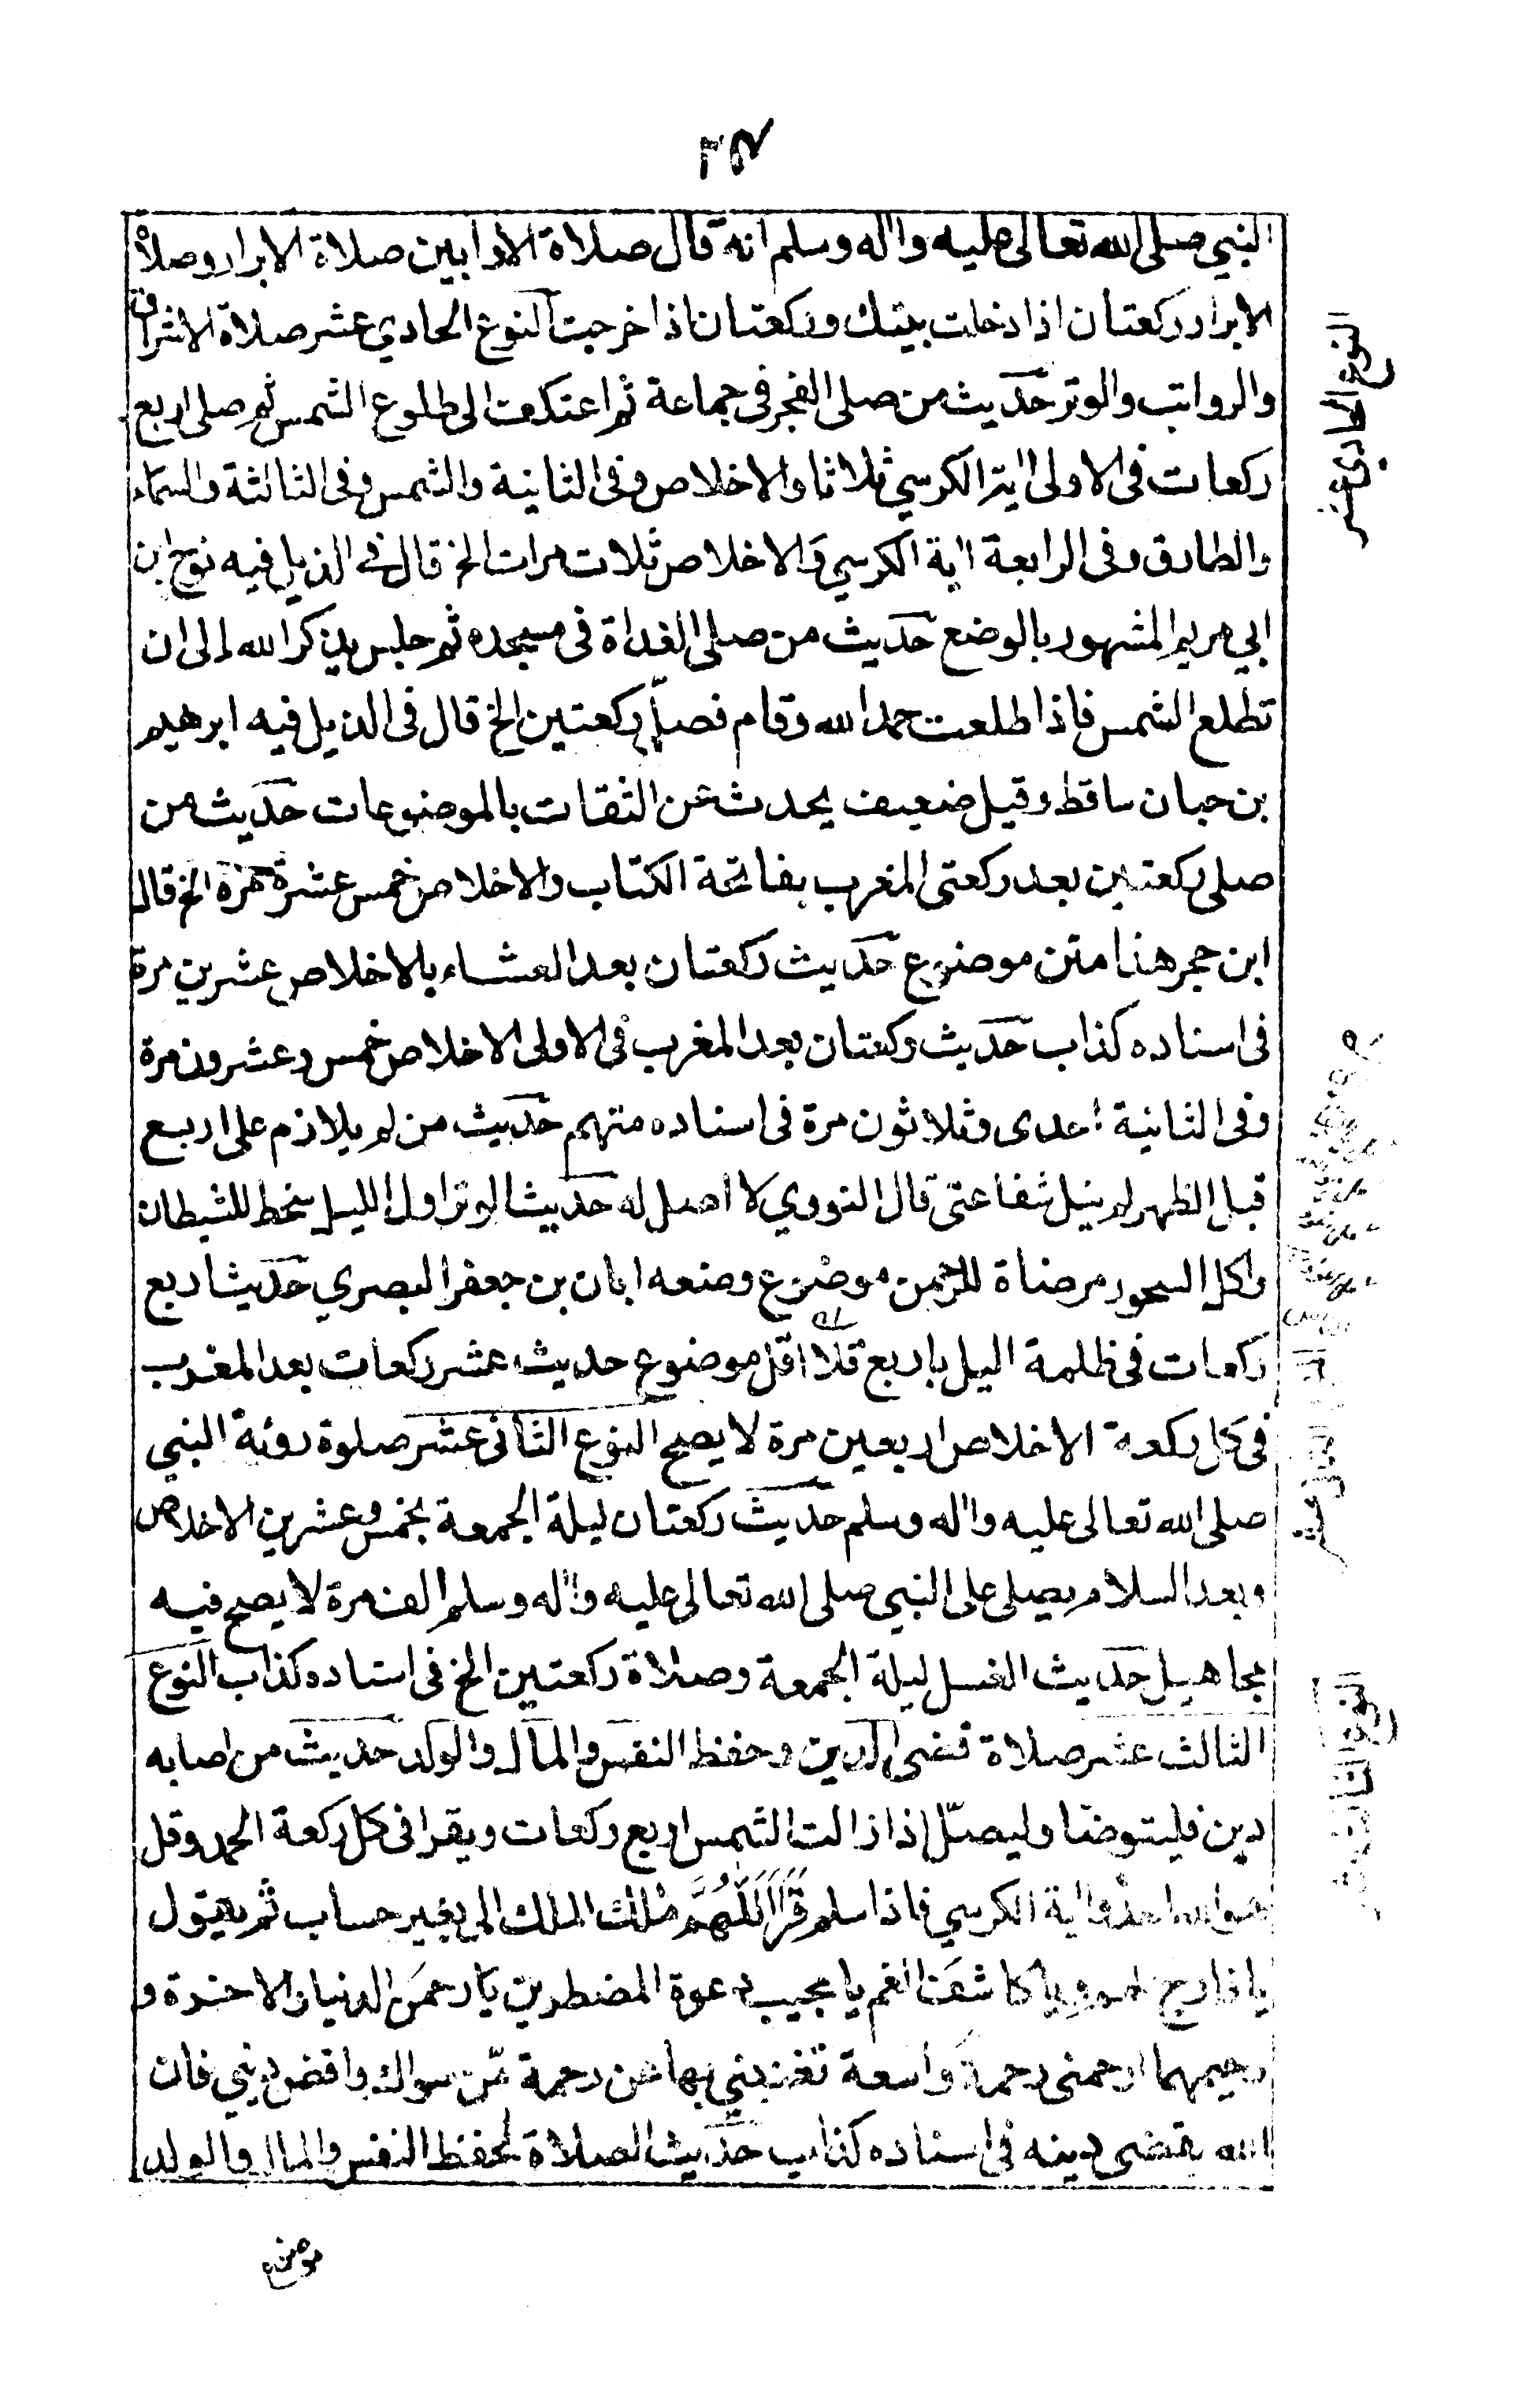 النبي صلى الله تعالى عليه واله وسلم انه قال صلاة الاوابين صلاة الابرار وصلاة
الابرار ركعتان اذا دخلت بيتك وركعتان اذا خرجت النوع الحادي عشر صلاة الاشراق
والرواتب والوتر حديث من صلى الفجر في جماعة ثم اعتكف الى طلوع الشمس ثم صلى اربع
ركعات في الاولى اية الكرسي ثلاثا والاخلاص وفي الثانية والشمس وفي الثالثة والسماء
والطارق وفي الرابعة اية الكرسي والاخلاص ثلاث مرات الخ قال في الذيل فيه نوح ابن
ابي مريم المشهور بالوضع حديث من صلى الغداة في مسجده ثم جلس يذكر الله الى ان
تطلع الشمس فاذا طلعت حمد الله وقام فصلى ركعتين الخ قال في الذيل فيه ابرهيم
بن حبان ساقط وقيل ضعيف يحدث عن الثقات بالموضوعات حديث من
صلى ركعتين بعد ركعتي المغرب بفاتحة الكتاب والاخلاص خمس عشرة مرة الخ قال
ابن حجر هذا متن موضوع حديث ركعتان بعد العشاء بالاخلاص عشرين مرة
في اسناده كذاب حديث ركعتان بعد المغرب في الاولى الاخلاص خمس وعشرون مرة
وفي الثانية احدى وثلاثون مرة في اسناده متهم حديث من لم يلازم على اربع
قبل الظهر لم ينل شفاعتي قال النووي لا اصل له حديث الوتر اول الليل سخط للشيطان
واكل السحور مرضاة للرحمن موضوع وضعه ابان بن جعفر البصري حديث اربع
ركعات في ظلمة اليل باربع قلاقل موضوع حديث عشر ركعات بعد المغرب
في كل ركعة الاخلاص اربعين مرة لا يصح النوع الثاني عشر صلوة رؤية النبي
صلى الله تعالى عليه واله وسلم حديث ركعتان ليلة الجمعة بخمس وعشرين الاخلاص
وبعد السلام يصلي على النبي صلى الله تعالى عليه واله وسلم الف مرة لا يصح فيه
مجاهيل حديث الغسل ليلة الجمعة وصلاة ركعتين الخ في اسناده كذاب النوع
الثالث عشر صلاة قضى الدين وحفظ النفس والمال والولد حديث من اصابه
دين فليتوضا وليصل اذا زالت الشمس اربع ركعات ويقرا في كل ركعة الحمد وقل
هو الله احد واية الكرسي فاذا سلم قَرَأ اللّٰهُمَّ مٰلك الملك الى بغير حساب ثم يقول
يا فارج الهم ويا كاشف الغم يا مجيب دعوة المضطرين يا رحمن الدنيا والاخرة و
رحيمهما ارحمني رحمة واسعة تغنيني بها عن رحمة من سواك واقض ديني فان
الله يقضي دينه في اسناده كذاب حديث الصلاة لحفظ النفس والمال والولد
النوع الحادي عشر